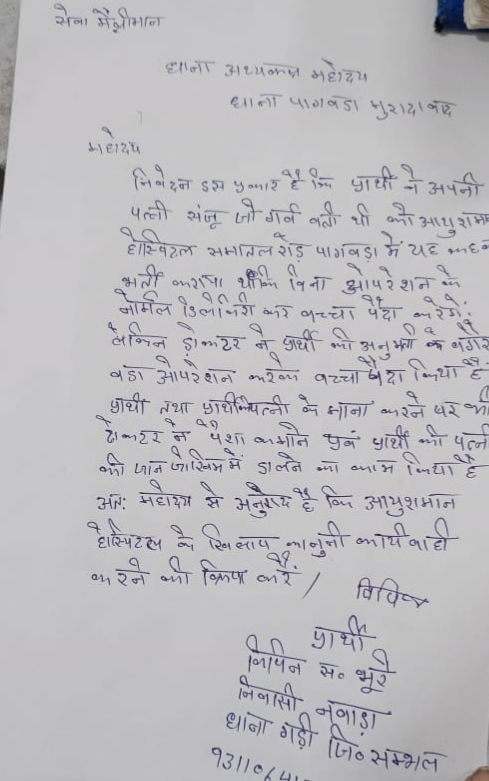 सेवा मैं श्रीमान
थाना अध्यक्ष महोदय
थाना पागवडा मुरादाबाद
महोदय
निवेदन इस प्रकार है कि प्रार्थी ने अपनी
पत्नी संजू जो गर्व वती थी को आयुशमान
होस्पिटल समातल रोड़ पागवड़ा में यह कहकर
भर्ती कराया था कि बिना ओपरेशन के
नोर्मल डिलेकिरी कर बच्चा पैदा करेगे।
लेकिन ड़ोक्टर ने प्रार्थी की अनुमती के बगैर
बडा ओपरेशन करके बच्चा पैदा किया है
प्रार्थी तथा प्रार्थी कि पत्नी के माना करने पर भी
डोक्टर ने पैशा कमाने एवं प्रार्थी की पत्नी
की जान जोखिम में डालने का काम किया है
अतः महोदय से अनुरोध है कि आयुशमान
होस्पिटल के खिलाप कानुनी कार्यवाही
करने की क्रिपा करें /
विपिन
प्रार्थी
विपिन स० भूरे
निवासी नवाड़ा
थाना गढ़ी जि० सम्भल